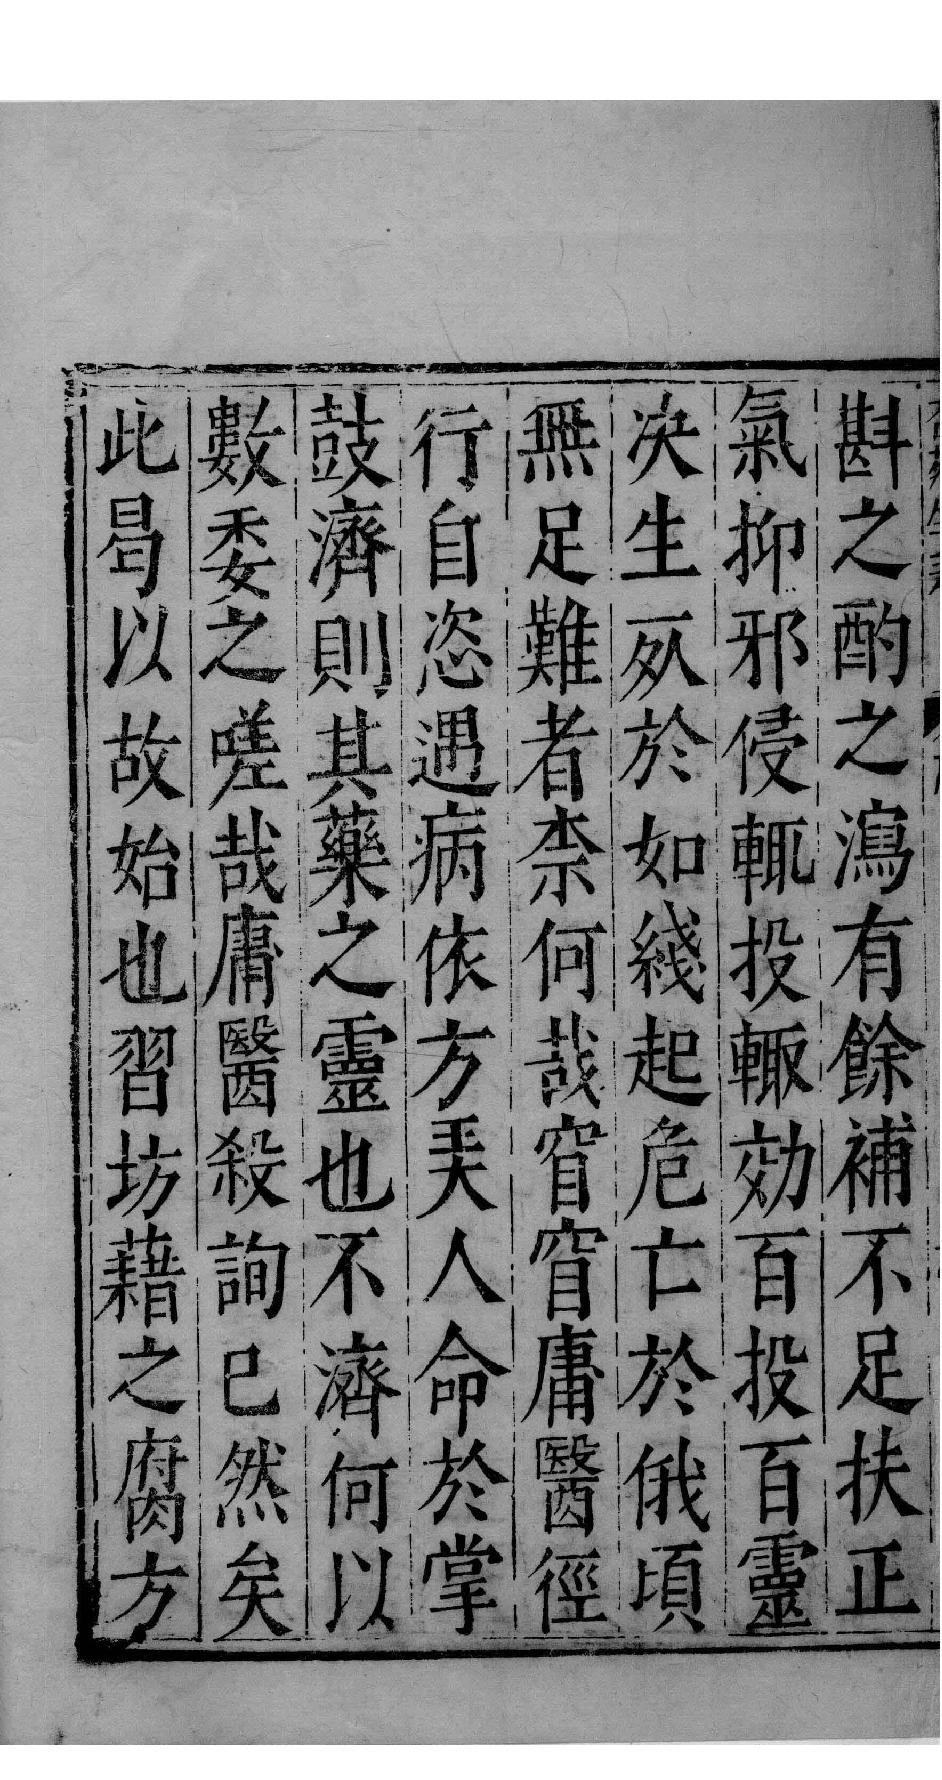 斟之酌之瀉有餘補不足扶正
氣抑邪侵輒投輙効百投百靈
决生死於如綫起危亡於俄頃
無足難者柰何哉窅窅庸醫徑
行自恣遇病依方美人命於掌
鼓濟則其藥之靈也不濟何以
數委之嗟哉庸醫殺詢已然矣
此曷以故始也習坊藉之腐方